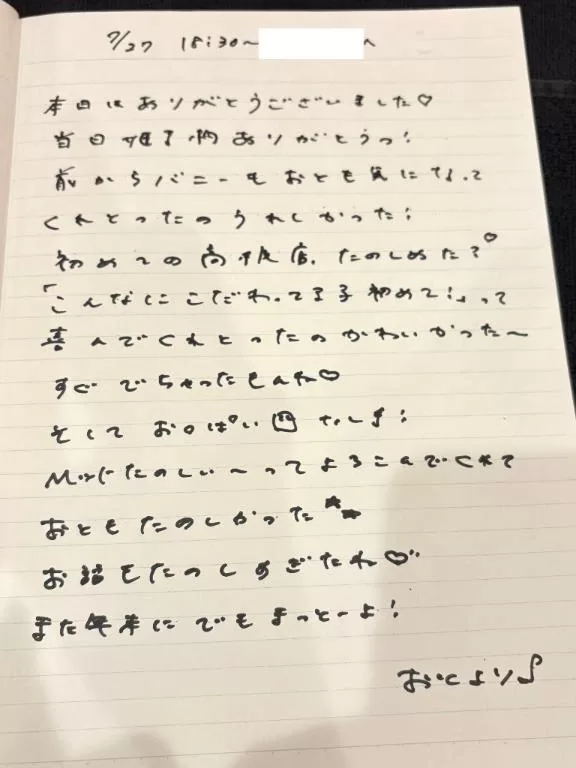 7/27 18:30〜 へ
本日はありがとうございました♡
当日 ありがとうっ!
前からバニーもおとも気になって
くれとったのうれしかった!
初めての高級店、たのしめた?
「こんなにこだわってる子初めて!」って
喜んでくれとったのかわいかった〜
すぐでちゃったもんね♡
そして おっぱい なしす!
Mっけたのしい〜ってよろこんでくれて
おともたのしかった
お話もたのしすぎたね♡
また年末にでもまっとーよ!
おとより